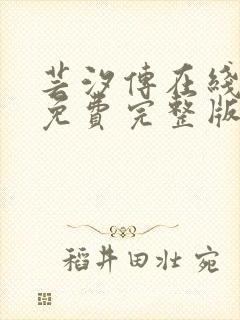 芸汐傳在綫
免費完整版
稻井田壯 宛